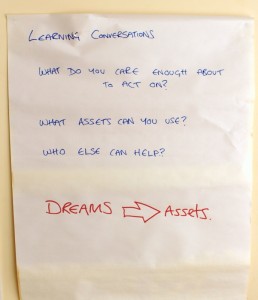 LEARNING CONVERSATIONS
WHAT DO YOU CARE ENOUGH ABOUT
TO ACT ON?
WHAT ASSETS CAN YOU USE?
WHO ELSE CAN HELP?
DREAMS ⇨ Assets.